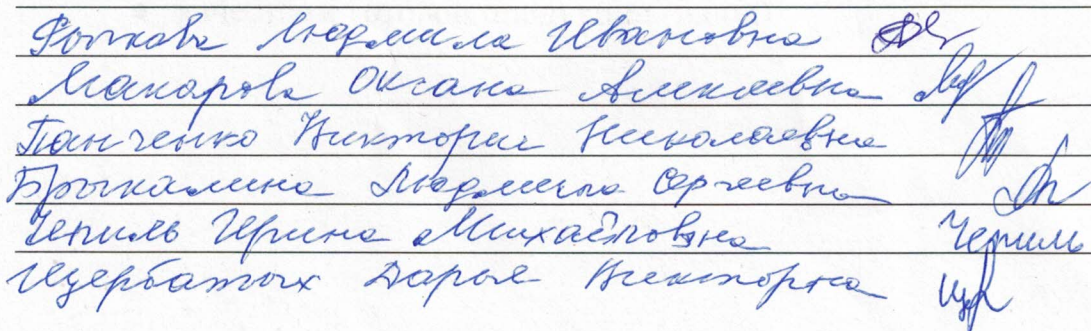 Людмила Ивановна
Макарова Оксана Алексевна
Панченко Виктория Николаевна
Брыкалина Людмила Сергеевна
Чепиль Ирина Михайловна Чепиль
Щербатых Дарья Викторна